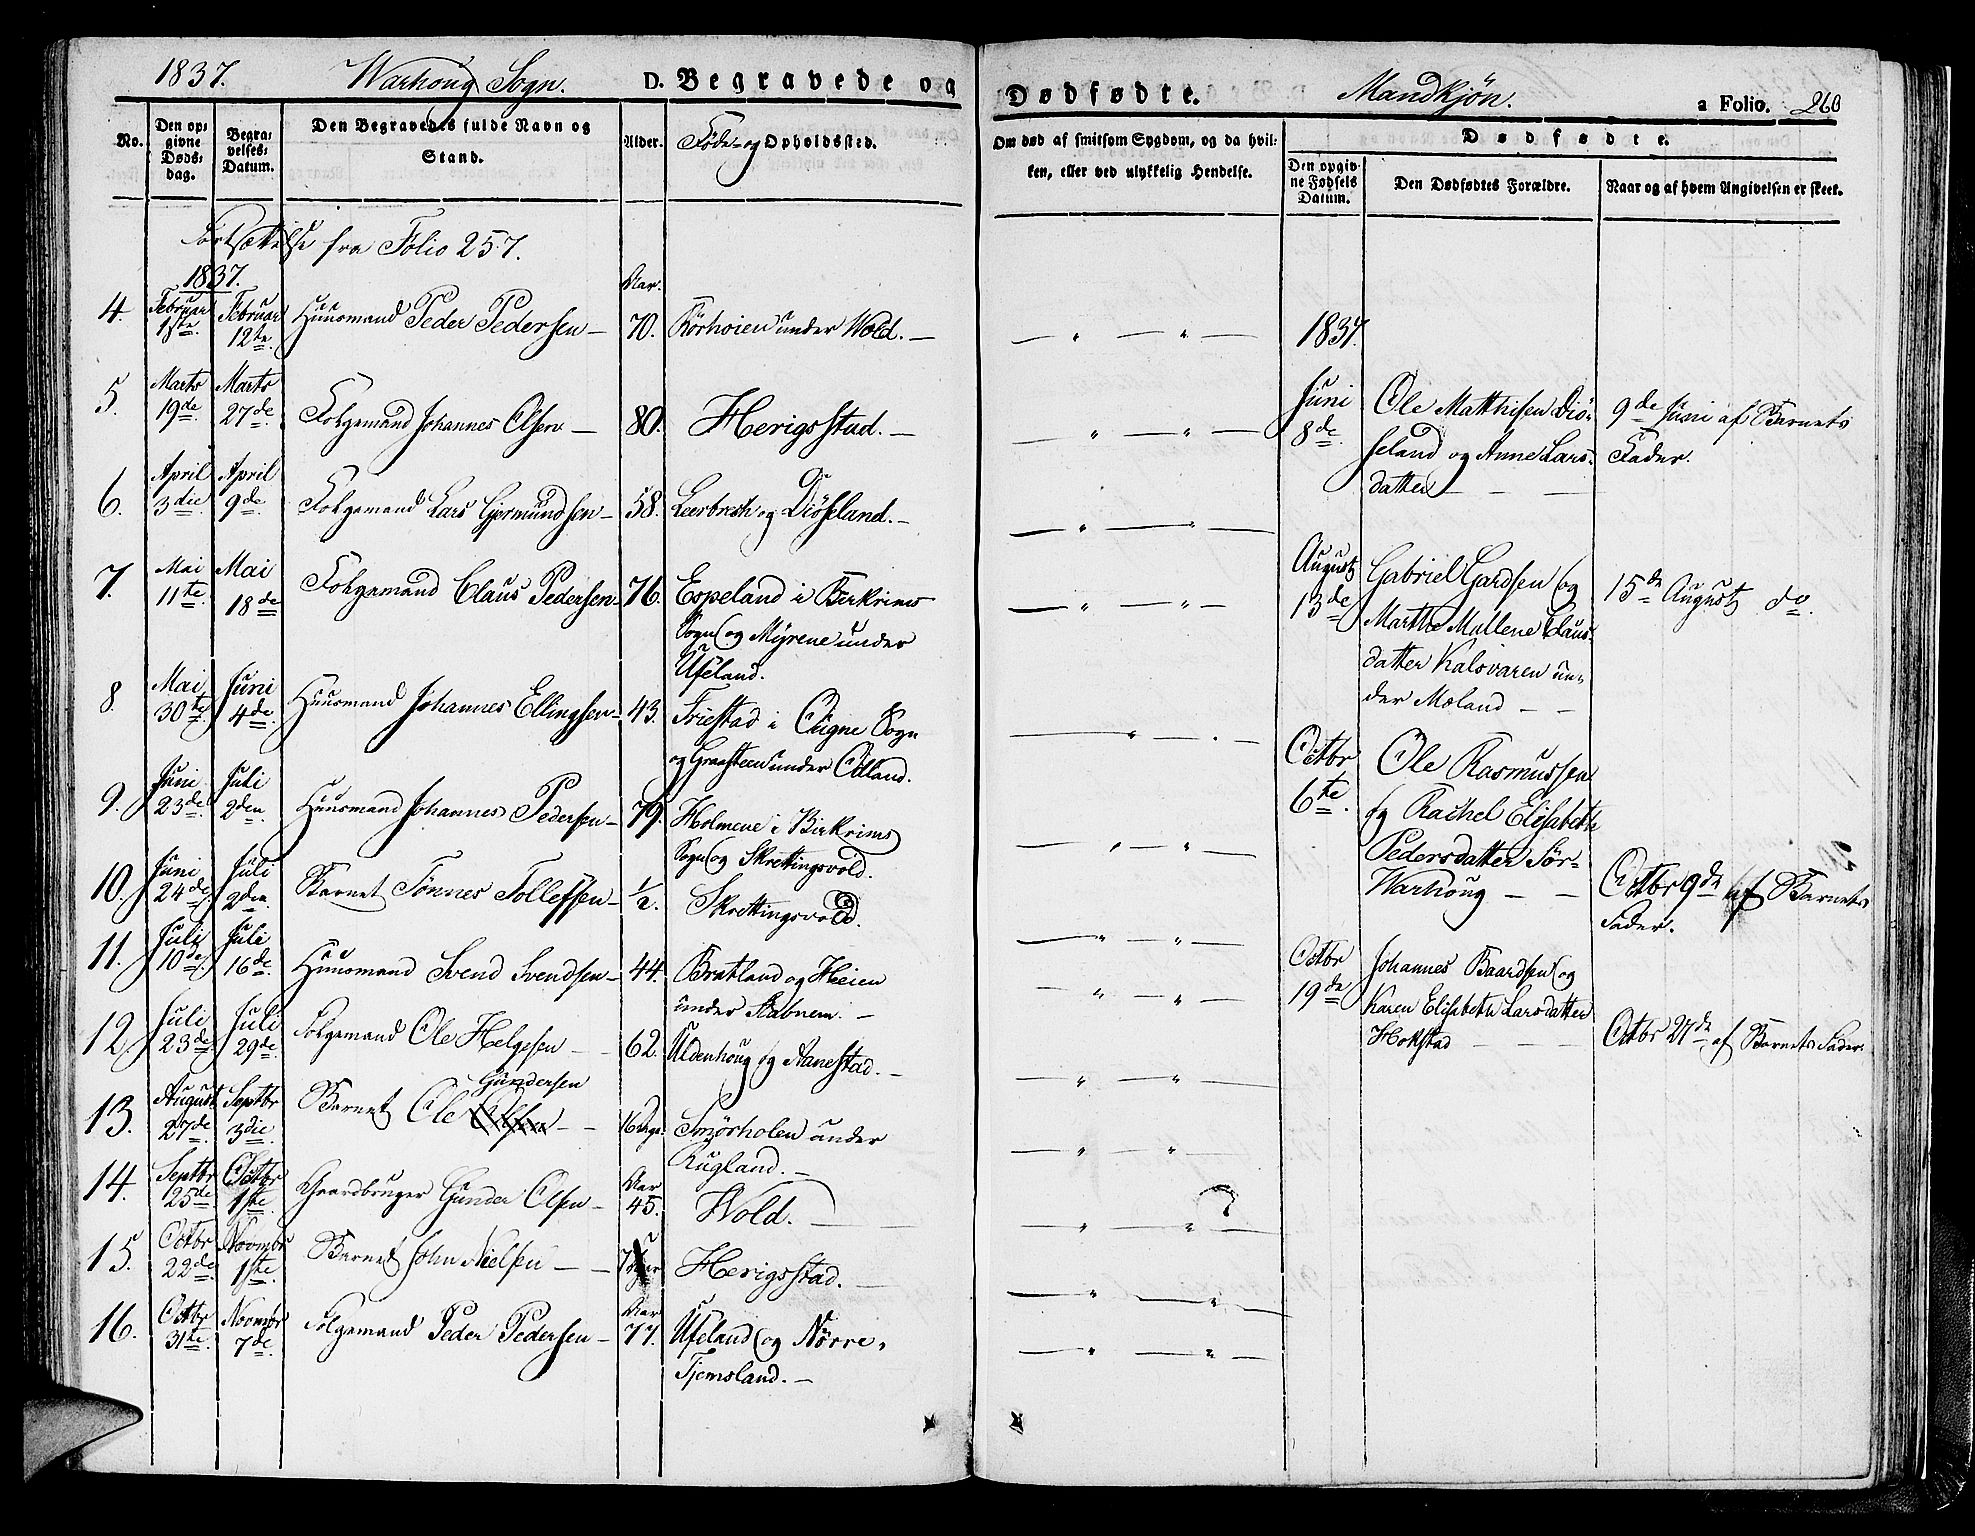 1837. Warhoug Sogn. D. Begravede og Dødfødte. Mandkjøn. a Folio. 260
No. Den opgivne Dødsdag. Begravelses-Datum. Den Begravedes fulde Navn og Stand. Alder. Føde- og Opholdssted. Om død af smitsom Sygdom, og da hvilken, eller ved ulykkelig Hendelse. Dødfødte. Den opgivne Fødsels Datum. Den Dødfødtes Forældre. Naar og af hvem Angivelsen er skeet.
Fortsættelse fra Folio 257.
1837. Aar.
4. Februar 1ste. Februar 12te. Huusmand Peder Pedersen 70. Rørhoien under Wold.
5. Marts 19de Marts 27de. Folgemand Johannes Olsen 80. Herigsstad.
6. April 3die. April 9de. Folgemand Lars Gjermundsen 58. og Diösland.
7. Mai 11te. Mai 18de Folgemand Claus Pedersen 76. Espeland i Birkrims
Sogn og Myrene under
Ufeland.
8. Mai 30te. Juni 4de. Huusmand Johannes Ellingsen 43. Friestad i Sogn
og Graasteen under Odland.
9. Juni 23de Juli 2den. Huusmand Johannes Pedersen 79. Holmene i Birkrims
Sogn og Skrettingsvold.
10. Juni 24de. Juli 2den. Barnet Tønnes Tollefsen ½. Skrettingsvold.
11. Juli 10de. Juli 16de. Huusmand Svend Svendsen 44. Bratland og Heien
under Stabnem.
12. Juli 23de. Juli 29de. Folgemand Ole Helgesen 62. Aldenhoug og Aanestad.
13. August 27de. Septbr 3die. Barnet Ole Gundersen 16 Dage. Smørholen under
Rugland.
14. Septbr 25de. Octbr 1ste. Gaardbruger Gunder Olsen Aar 45. Wold.
15. Octbr 22de. Novmbr 1ste. Barnet John Nielsen 7 Herigsstad.
16. Octbr 31te. Novmbr 7de. Folgemand Peder Pedersen Aar 77. Ufeland og Nørre
Tjemsland.
1837.
Juni 8de. Ole Matthisen Diö-
seland og Anne Lars-
datter
9de Juni af Barnets
Fader.
August 13de Gabriel Gardsen og
Marthe Mallene Claus-
datter Kalsvaren un-
der Moland
15de August do.
Octbr 6te. Ole Rasmussen
og Rachel Elisabeth
Pedersdatter Sør-
Warhoug
Octbr 9de af Barnets
Fader.
Octbr 19de Johannes Baardsen og
Karen Elisabeth Larsdatter
Hokstad
Octbr 27de af Barnets Fader.